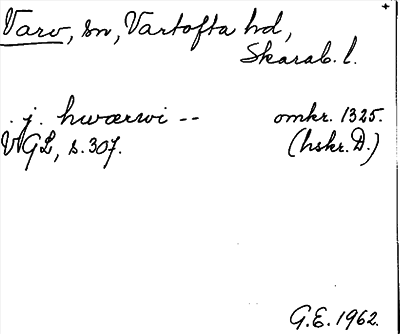 Varv, sn, Vartofta hd,
Skarab. l.
. j. hwærwi -- omkr. 1325.
VGL, s. 307. (hskr. D.)
G.E. 1962.